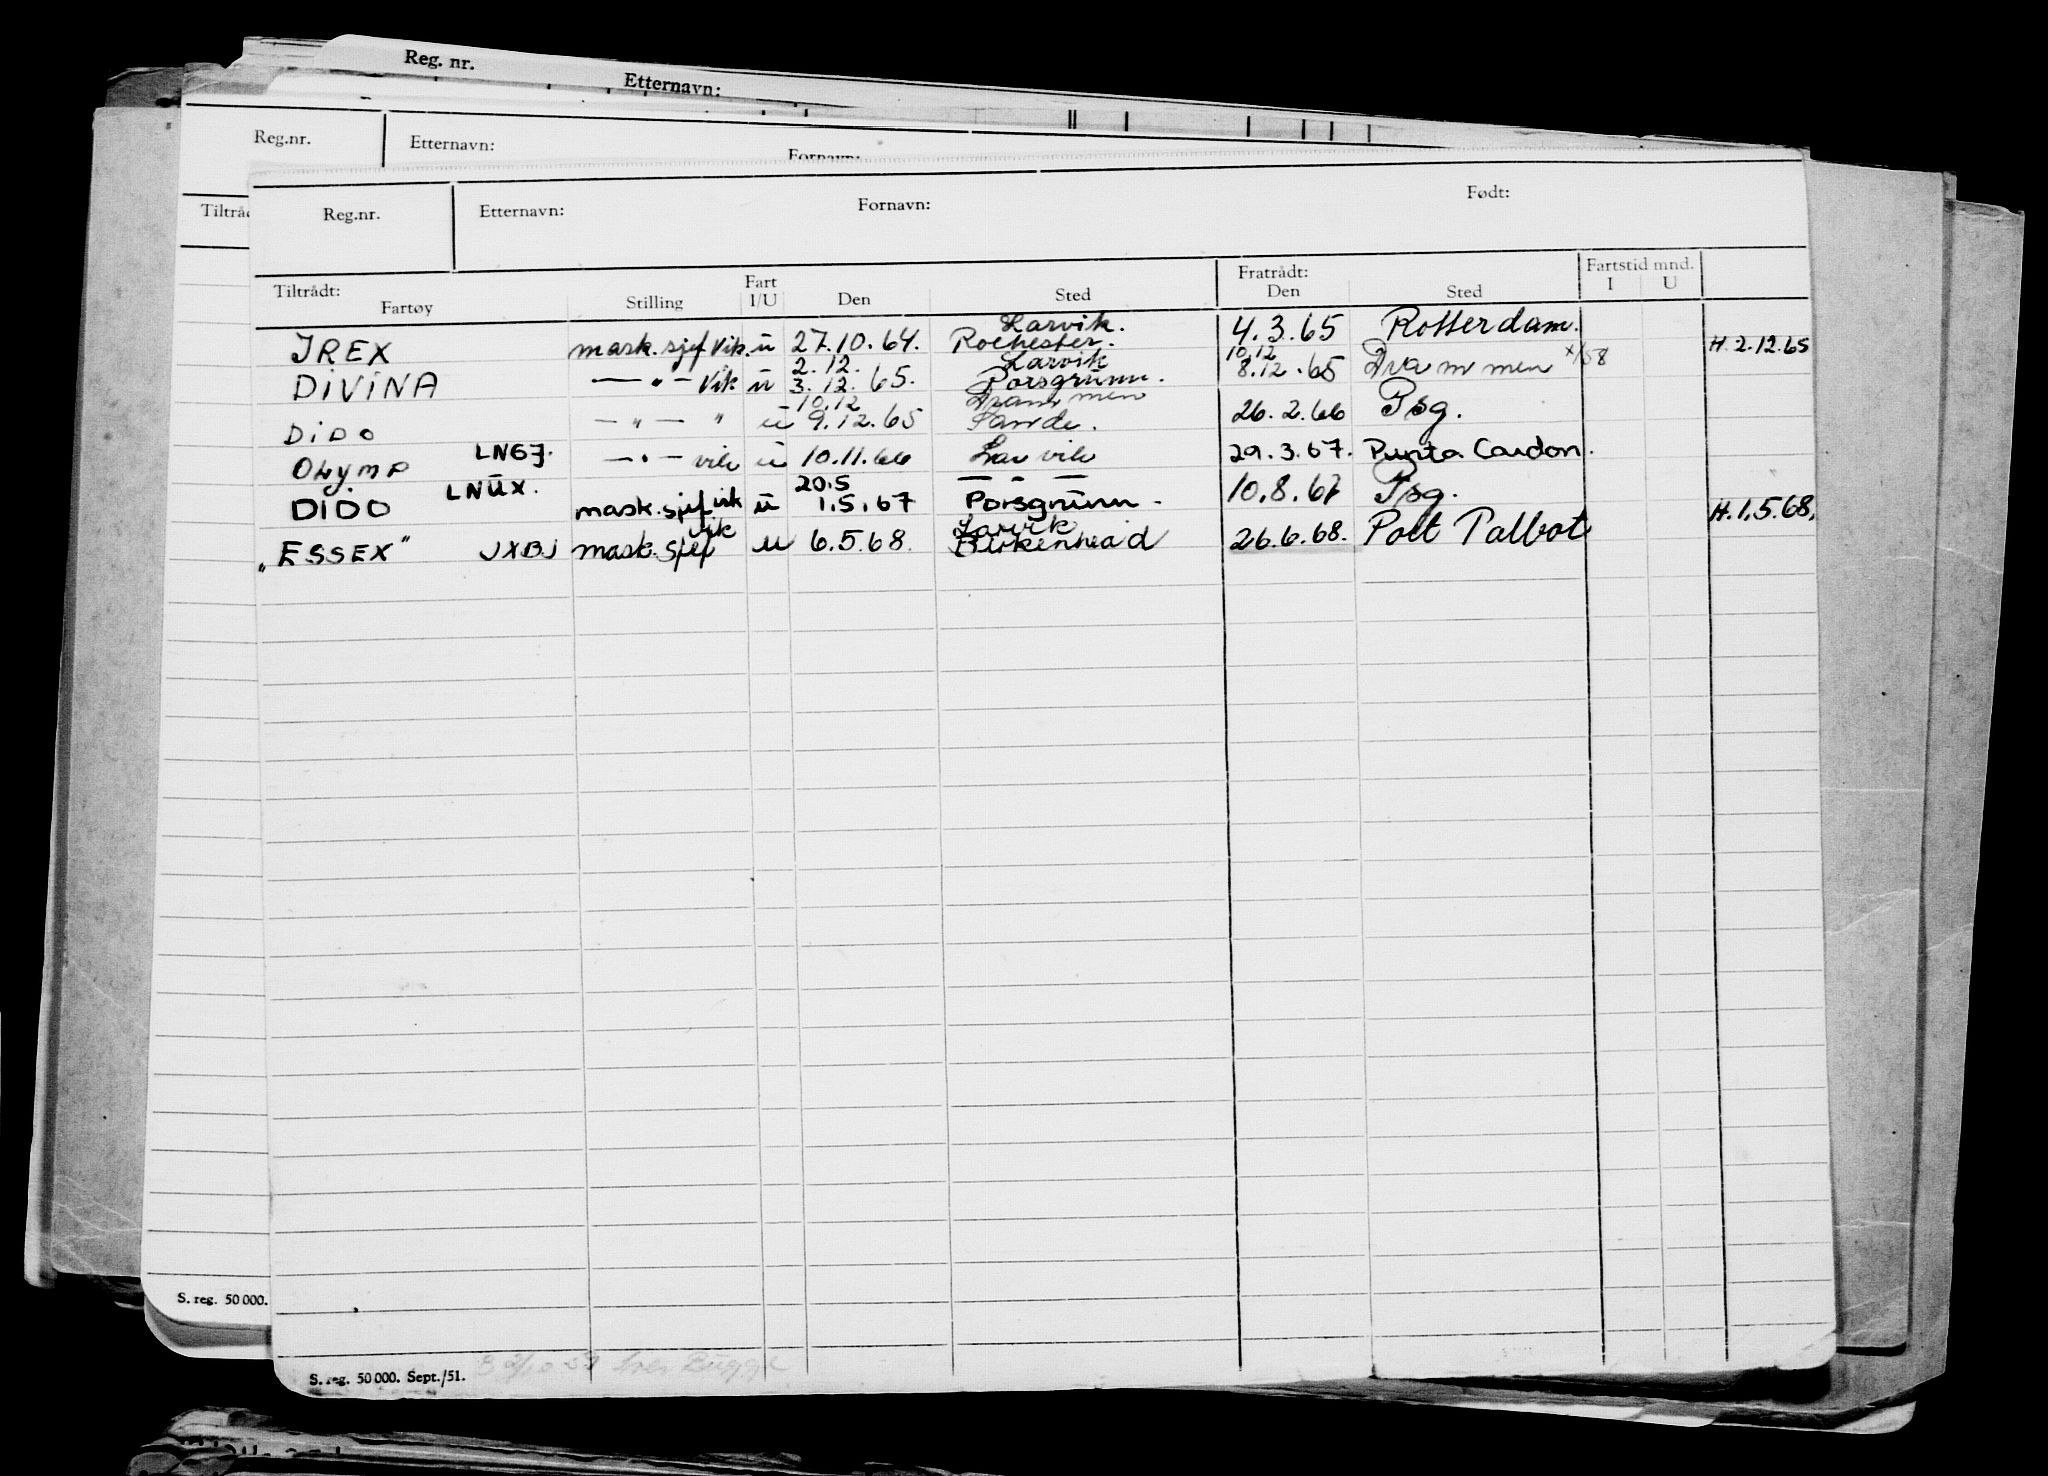 Reg. nr. Etternavn:
Reg.nr. Etternavn: Fornavn:
Tiltråd
Reg.nr. Etternavn: Fornavn: Født:
Tiltrådt: Fart Fratrådt: Fartstid mnd.
Fartøy Stilling I/U Den Sted Den Sted I U
Larvik.
IREX mask.sjef Vik. ü 27.10.64. Rochester. 4.3.65 Rotterdam. H. 2.12.65
2.12. Larvik 10.12
DiViNA — " — Vik ü 3.12.65. Porsgrunn. 8.12.65 Drammen x/58
10.12 Drammen
DiDO — " — " ü 9.12.65 Sande. 26.2.66 Psg.
OLYMP LNGJ. — " — vik ü 10.11.66 Larvik 29.3.67. Punta Cardon.
20.5 — — —
DiDO LNÜX. mask.sjef vik ü 1.5.67 Porsgrünn. 10.8.67 Psg. H.1.5.68,
vik Larvik
"ESSEX" JXBJ mask.sjef u 6.5.68. Birkenhead 26.6.68. Port Talbot
S. reg. 50 000.
S. reg. 50 000. Sept./51.